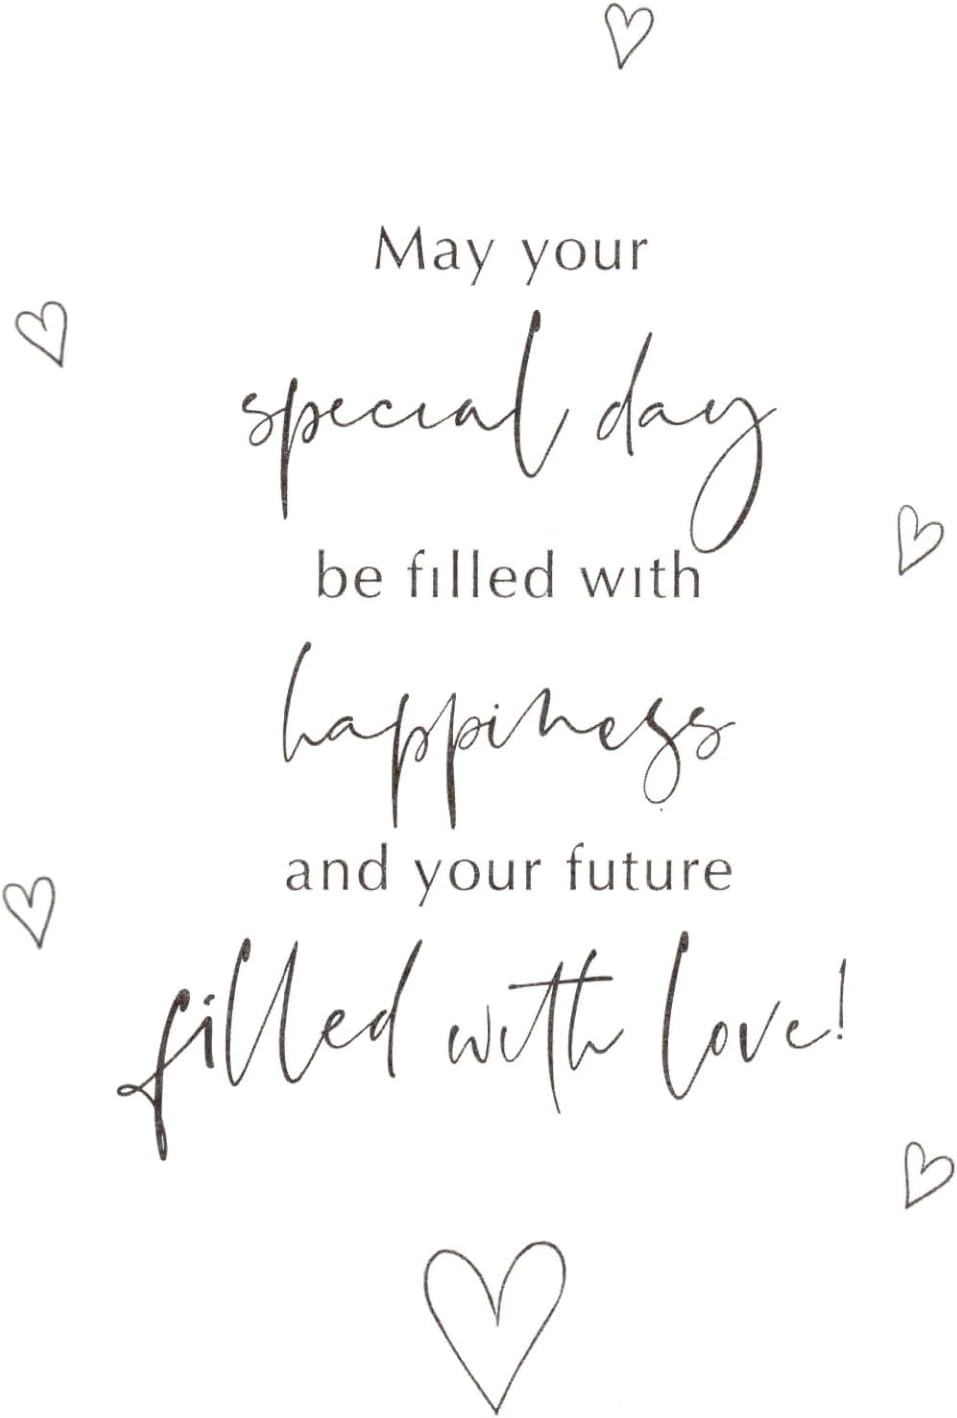 May your
special day
be filled with
happiness
and your future
filled with love!